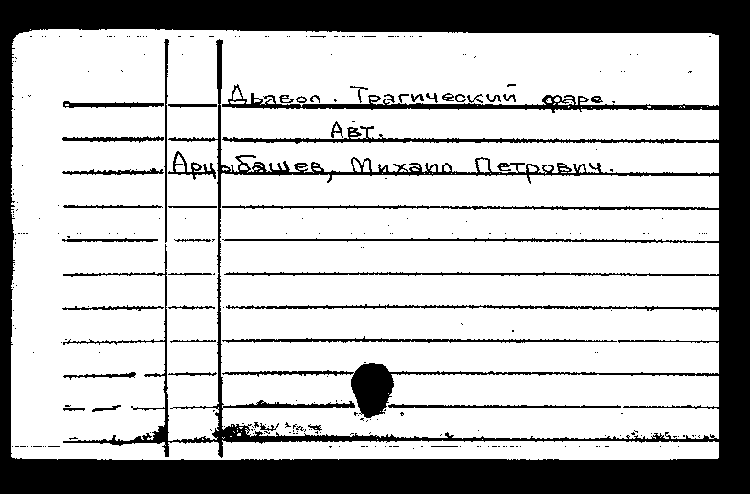 Дьявол. Трагический фарс.
Авт.
Арцыбашев, Михаил Петрович.